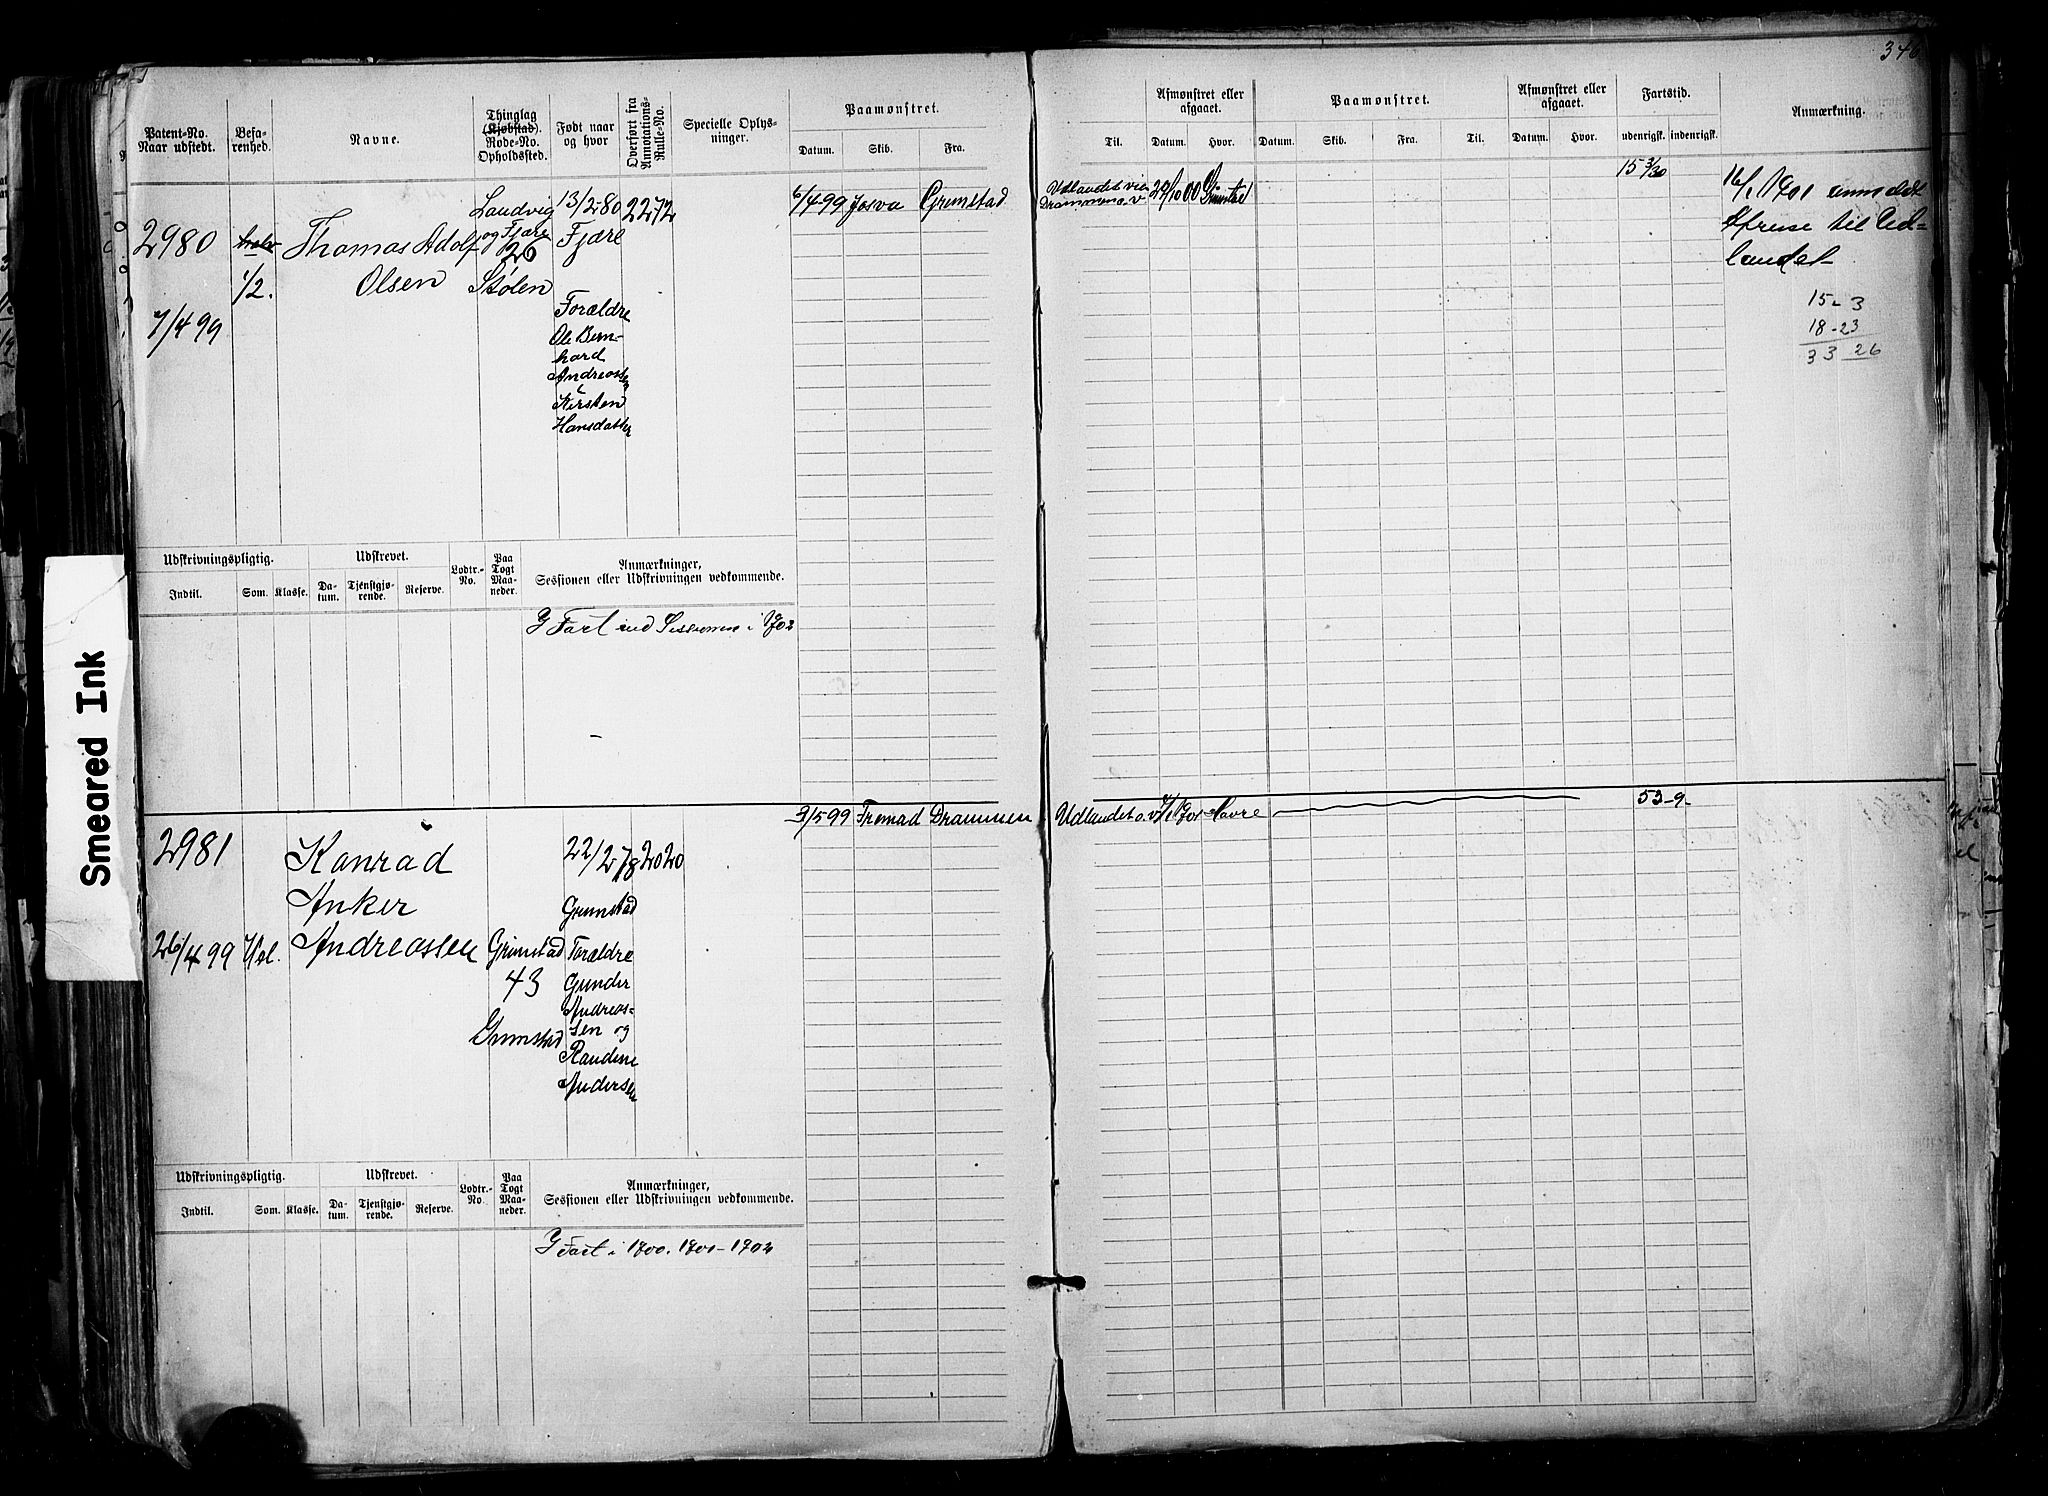 346
Patent-No.
Naar udstedt.
Befa-
renhed.
Navne.
Thinglag
(Kjøbstad).
Rode-No.
Opholdssted.
Født naar
og hvor
Overført fra
Annotations-
Rulle-No.
Specielle Oplys-
ninger.
Paamønstret.
Datum. Skib. Fra.
Til.
Afmønstret eller
afgaaet.
Datum. Hvor.
Paamønstret.
Datum. Skib. Fra. Til.
Afmønstret eller
afgaaet.
Datum. Hvor.
Fartstid.
udenrigsk. indenrigsk.
Anmærkning.
2980
7/4 99
halv
1/2.
Thomas Adolf
Olsen
Landvig
og Fjære
26
Stølen
13/2 80
Fjære
Forældre
Ole Bern-
hard
Andreassen
Kirsten
Hansdatter
2272
6/4 99 Josva Grimstad
Udlandet via
Drammen o.v
29/10 00 Grimstad
15 3/30
16/1 1901 anmeldt
Afreise til Ud-
landet
15 - 3
18 - 23
33 26
Udskrivningspligtig.
Indtil. Som. Klasse.
Udskrevet.
Da-
tum.
Tjenstgjø-
rende.
Reserve.
Lodtr.-
No.
Paa
Togt
Maa-
neder.
Anmærkninger,
Sessionen eller Udskrivningen vedkommende.
I Fart ved Sessionen i 1902
2981
26/4 99
Konrad
Anker
Andreassen
Grimstad
43
Grimstad
22/2 78
Grimstad
Forældre
Gunder
Andreas-
sen og
Randine
Andersen
2020
3/5 99 Fremad Drammen
Udlandet o.v. Havre
53-9-
Udskrivningspligtig.
Indtil. Som. Klasse.
Udskrevet.
Da-
tum.
Tjenstgjø-
rende.
Reserve.
Lodtr.-
No.
Paa
Togt
Maa-
neder.
Anmærkninger,
Sessionen eller Udskrivningen vedkommende.
I Fart i 1900. 1901 - 1902
Smeared Ink